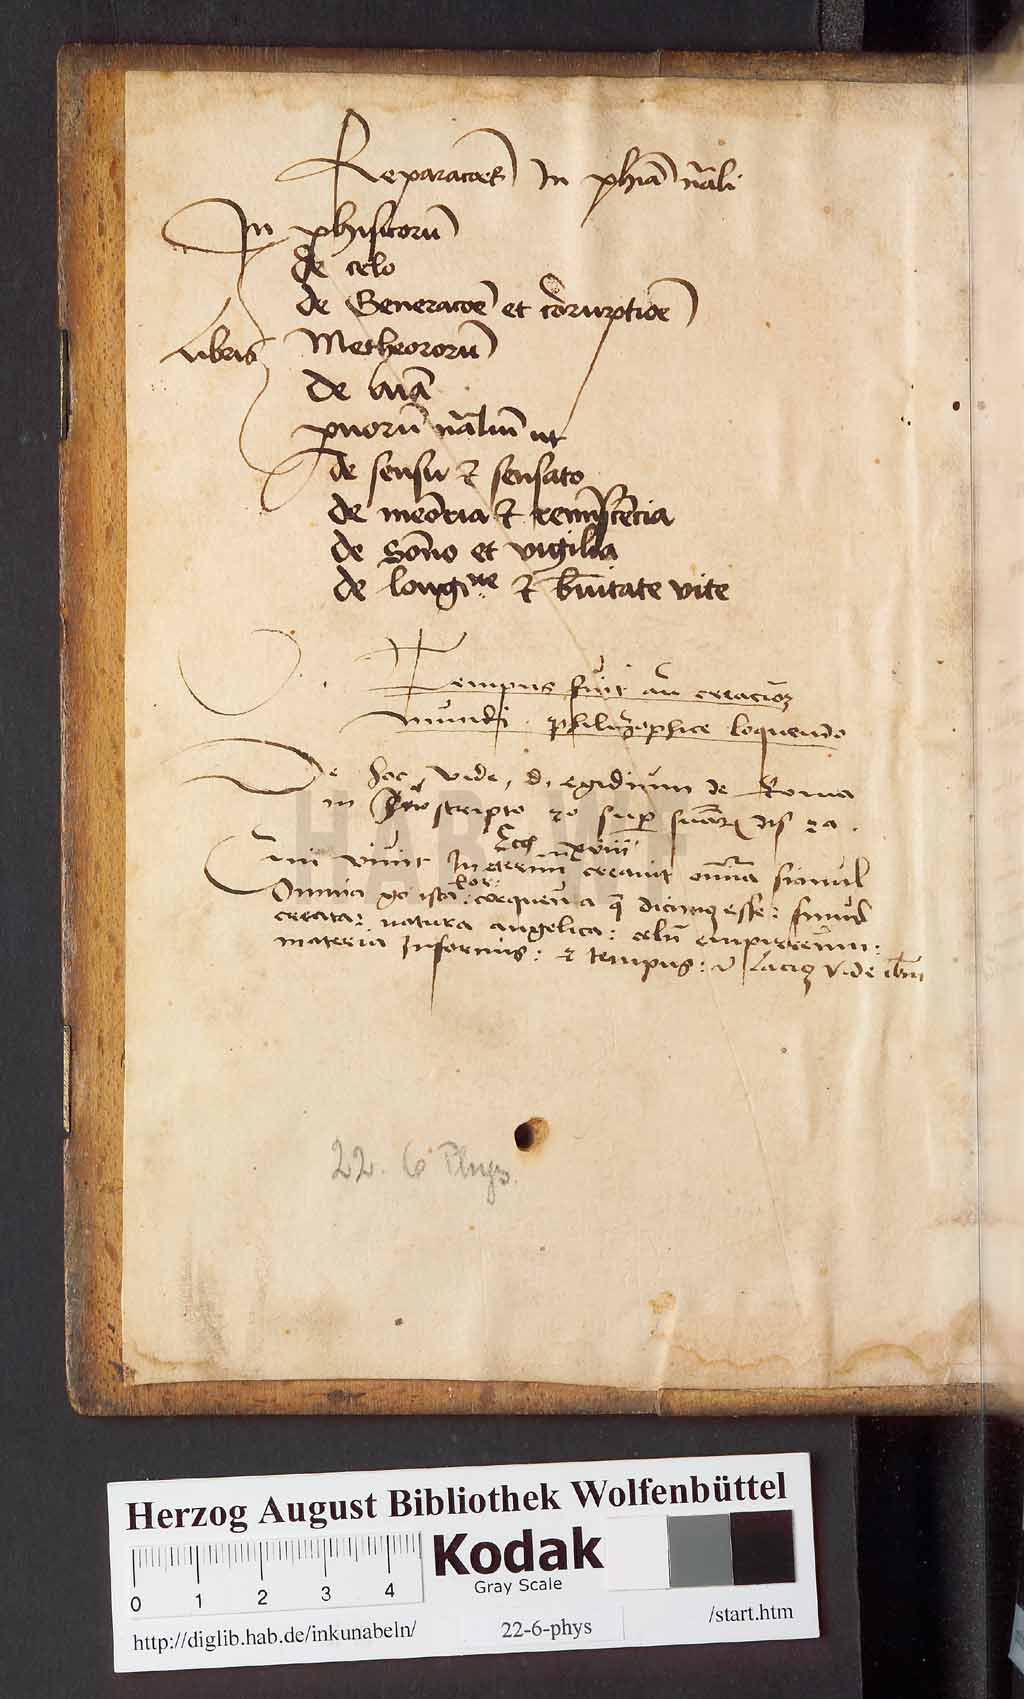 Reparacōes In phiā nāli
In phisicorū
de celo
de Generacōe et cōrruptiōe
Libris Metheororū
De aīa
pvorū nāliū ut
de sensu et sensato
de meōria et reminīscēcia
de Sōno et vigilia
de longi^ne et bvitate vite
Tempus fuit an creacioȝ
mundi philozophice loquendo
De hoc vide d. egidium de Roma
in scripto super
Qui vivit In eternū creavit omīa simul
Omnia ista esse: simul
creata: natura angelica: celū empireum:
materia Informis: et tempus: vide ibm
22. 6 Phys.
HAB
Herzog August Bibliothek Wolfenbüttel
Kodak
Gray Scale
0 1 2 3 4
http://diglib.hab.de/inkunabeln/ 22-6-phys /start.htm